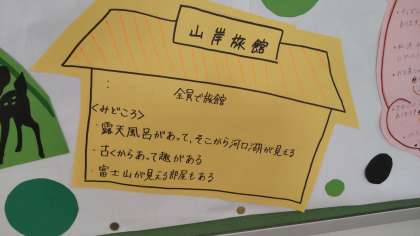 山岸旅館
:
全員で旅館
<みどころ>
・露天風呂があって、そこから河口湖が見える
・古くからあって趣がある
・富士山が見える部屋もある